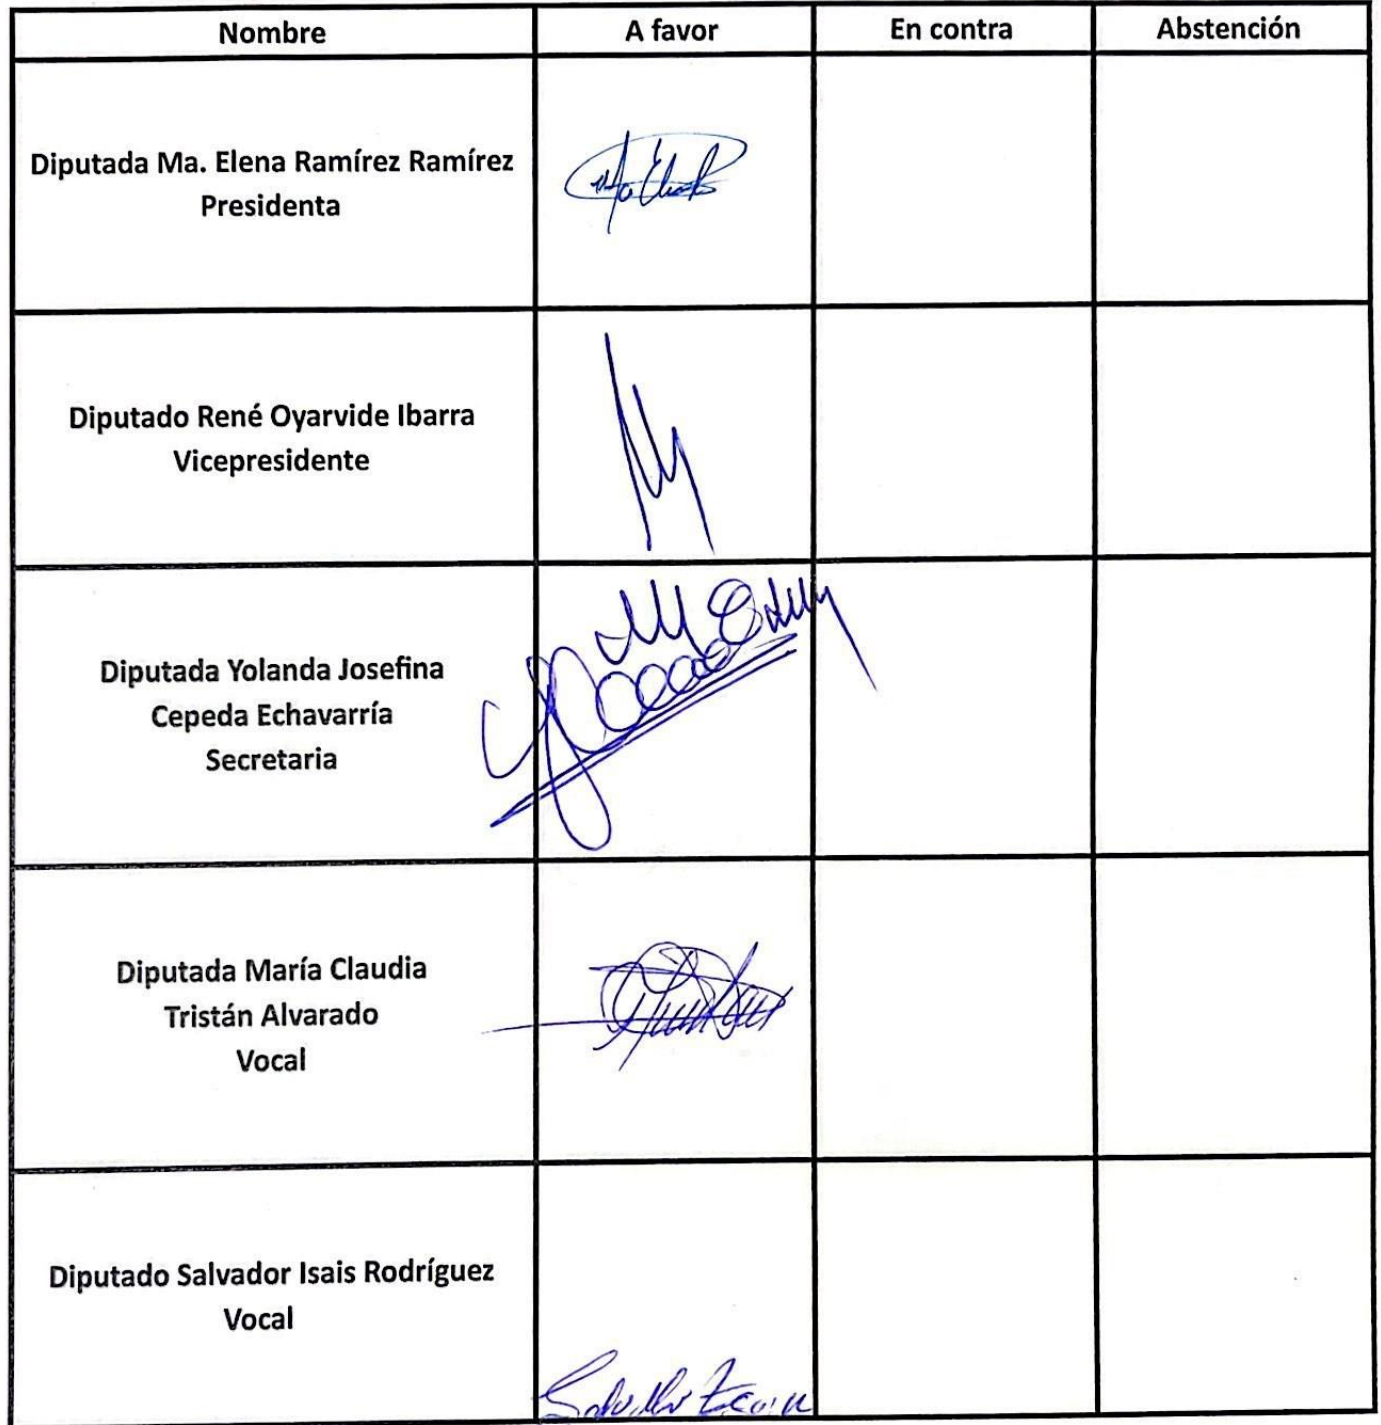 Nombre A favor En contra Abstención
Diputada Ma. Elena Ramírez Ramírez
Presidenta
Diputado René Oyarvide Ibarra
Vicepresidente
Diputada Yolanda Josefina
Cepeda Echavarría
Secretaria
Diputada María Claudia
Tristán Alvarado
Vocal
Diputado Salvador Isais Rodríguez
Vocal